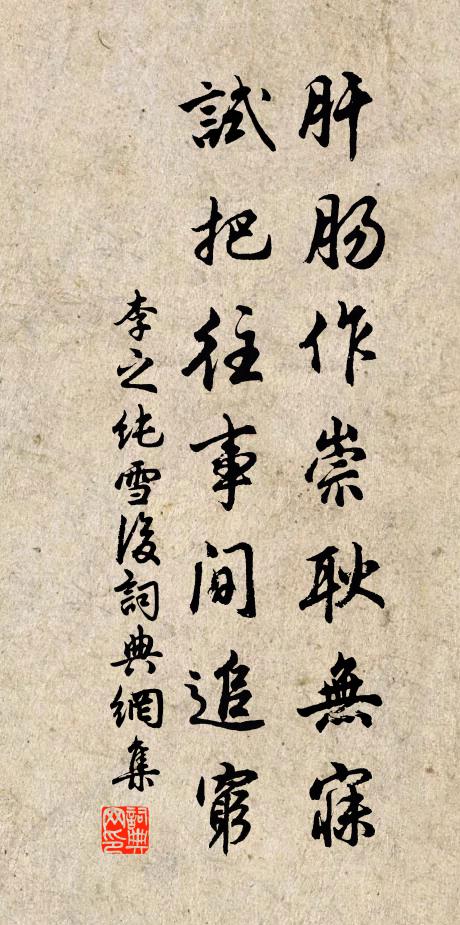 肝肠作崇耿無寐
試把往事間追窮
李之純雪後詞典網集
詞典网印